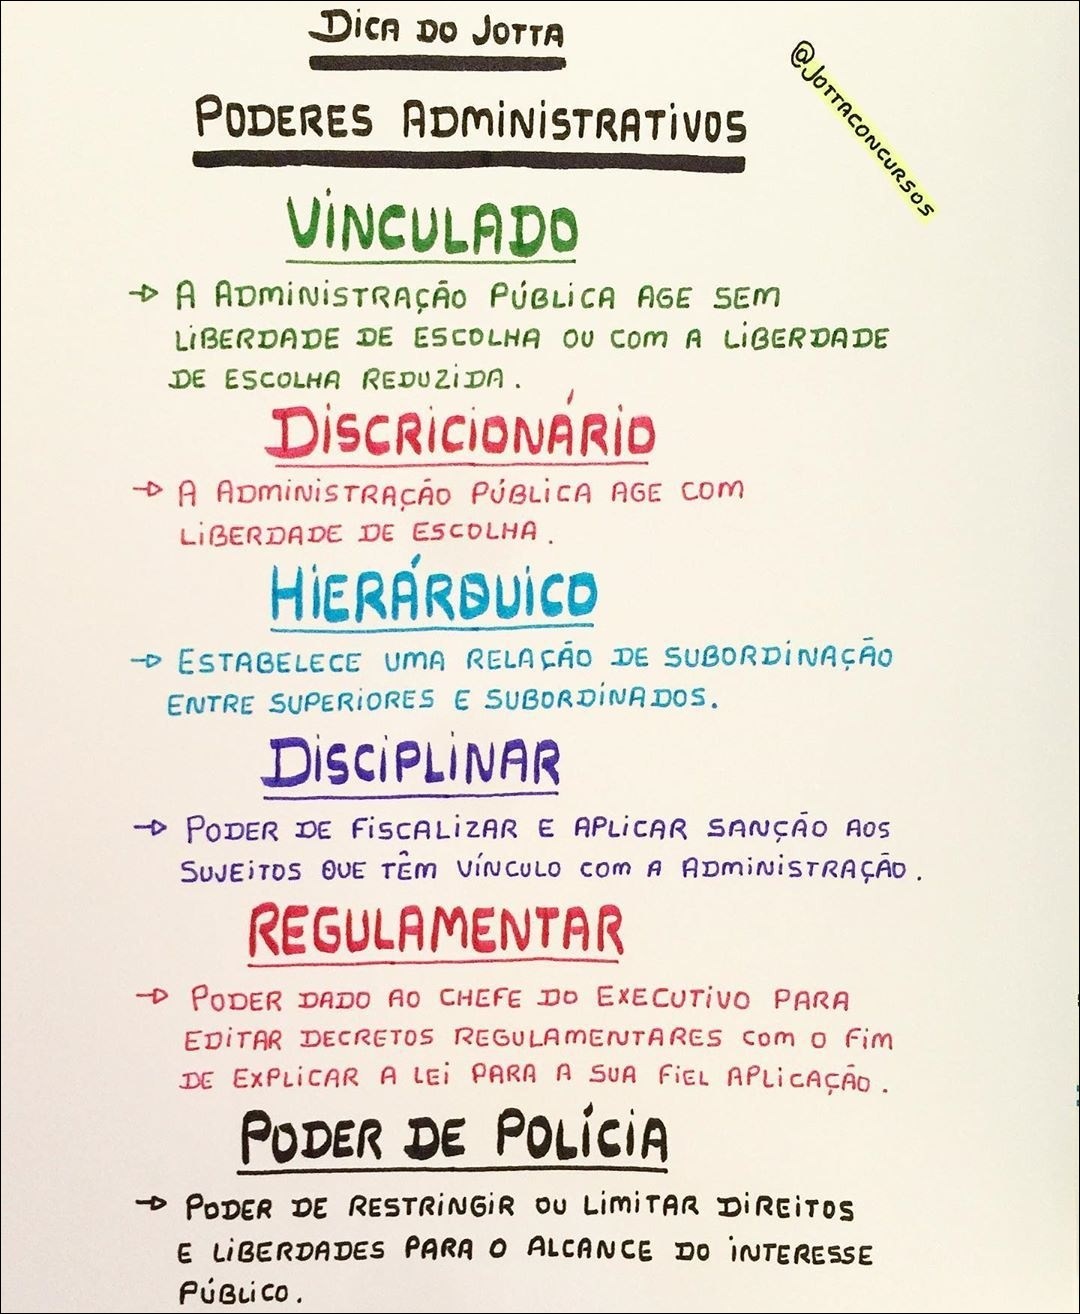 DICA DO JOTTA
@JOTTACONCURSOS
PODERES ADMINISTRATIVOS
VINCULADO
→ A ADMINISTRAÇÃO PÚBLICA AGE SEM
LIBERDADE DE ESCOLHA OU COM A LIBERDADE
DE ESCOLHA REDUZIDA.
DISCRICIONÁRIO
→ A ADMINISTRAÇÃO PÚBLICA AGE COM
LIBERDADE DE ESCOLHA.
HIERÁRQUICO
→ ESTABELECE UMA RELAÇÃO DE SUBORDINAÇÃO
ENTRE SUPERIORES E SUBORDINADOS.
DISCIPLINAR
→ PODER DE FISCALIZAR E APLICAR SANÇÃO AOS
SUJEITOS QUE TÊM VÍNCULO COM A ADMINISTRAÇÃO.
REGULAMENTAR
→ PODER DADO AO CHEFE DO EXECUTIVO PARA
EDITAR DECRETOS REGULAMENTARES COM O FIM
DE EXPLICAR A LEI PARA A SUA FIEL APLICAÇÃO.
PODER DE POLÍCIA
→ PODER DE RESTRINGIR OU LIMITAR DIREITOS
E LIBERDADES PARA O ALCANCE DO INTERESSE
PÚBLICO.